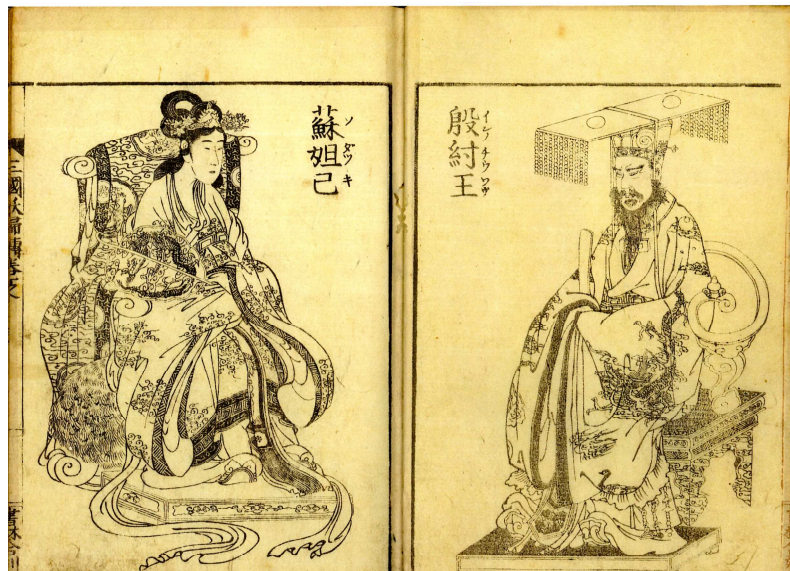 殷紂王
インノチウワウ
蘇妲己
ソダツキ
三國妖婦傳卷之